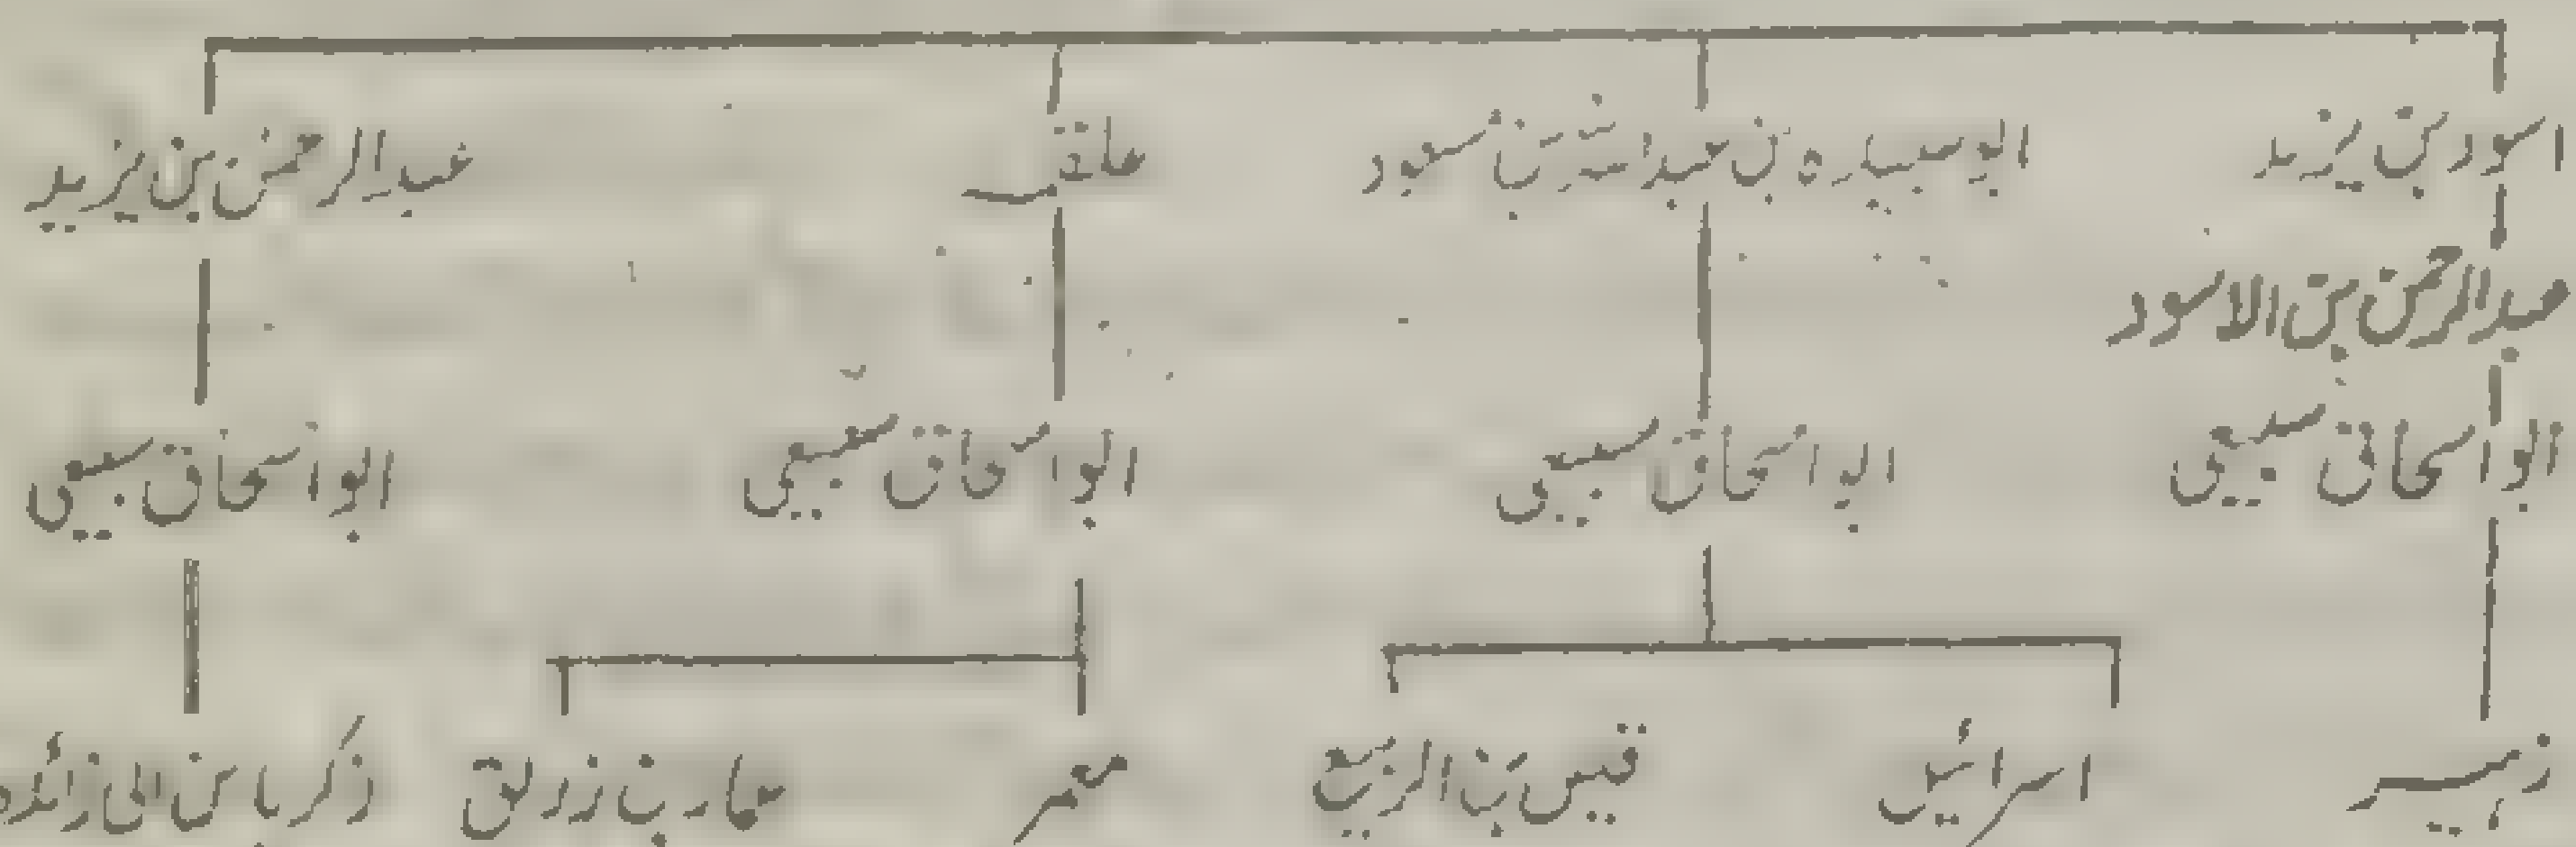 اسود بن یزید ابو سبیارہ بن عبد اللہ بن مسعود علقمہ عبد الرحمٰن بن یزید
عبد الرحمٰن بن الاسود
ابو اسحاق سبیعی ابو اسحاق سبیعی ابو اسحاق سبیعی ابو اسحاق سبیعی
زہیر اسرائیل قیس بن الربیع معمر عمار بن زریق زکریا بن ابی زائدہ